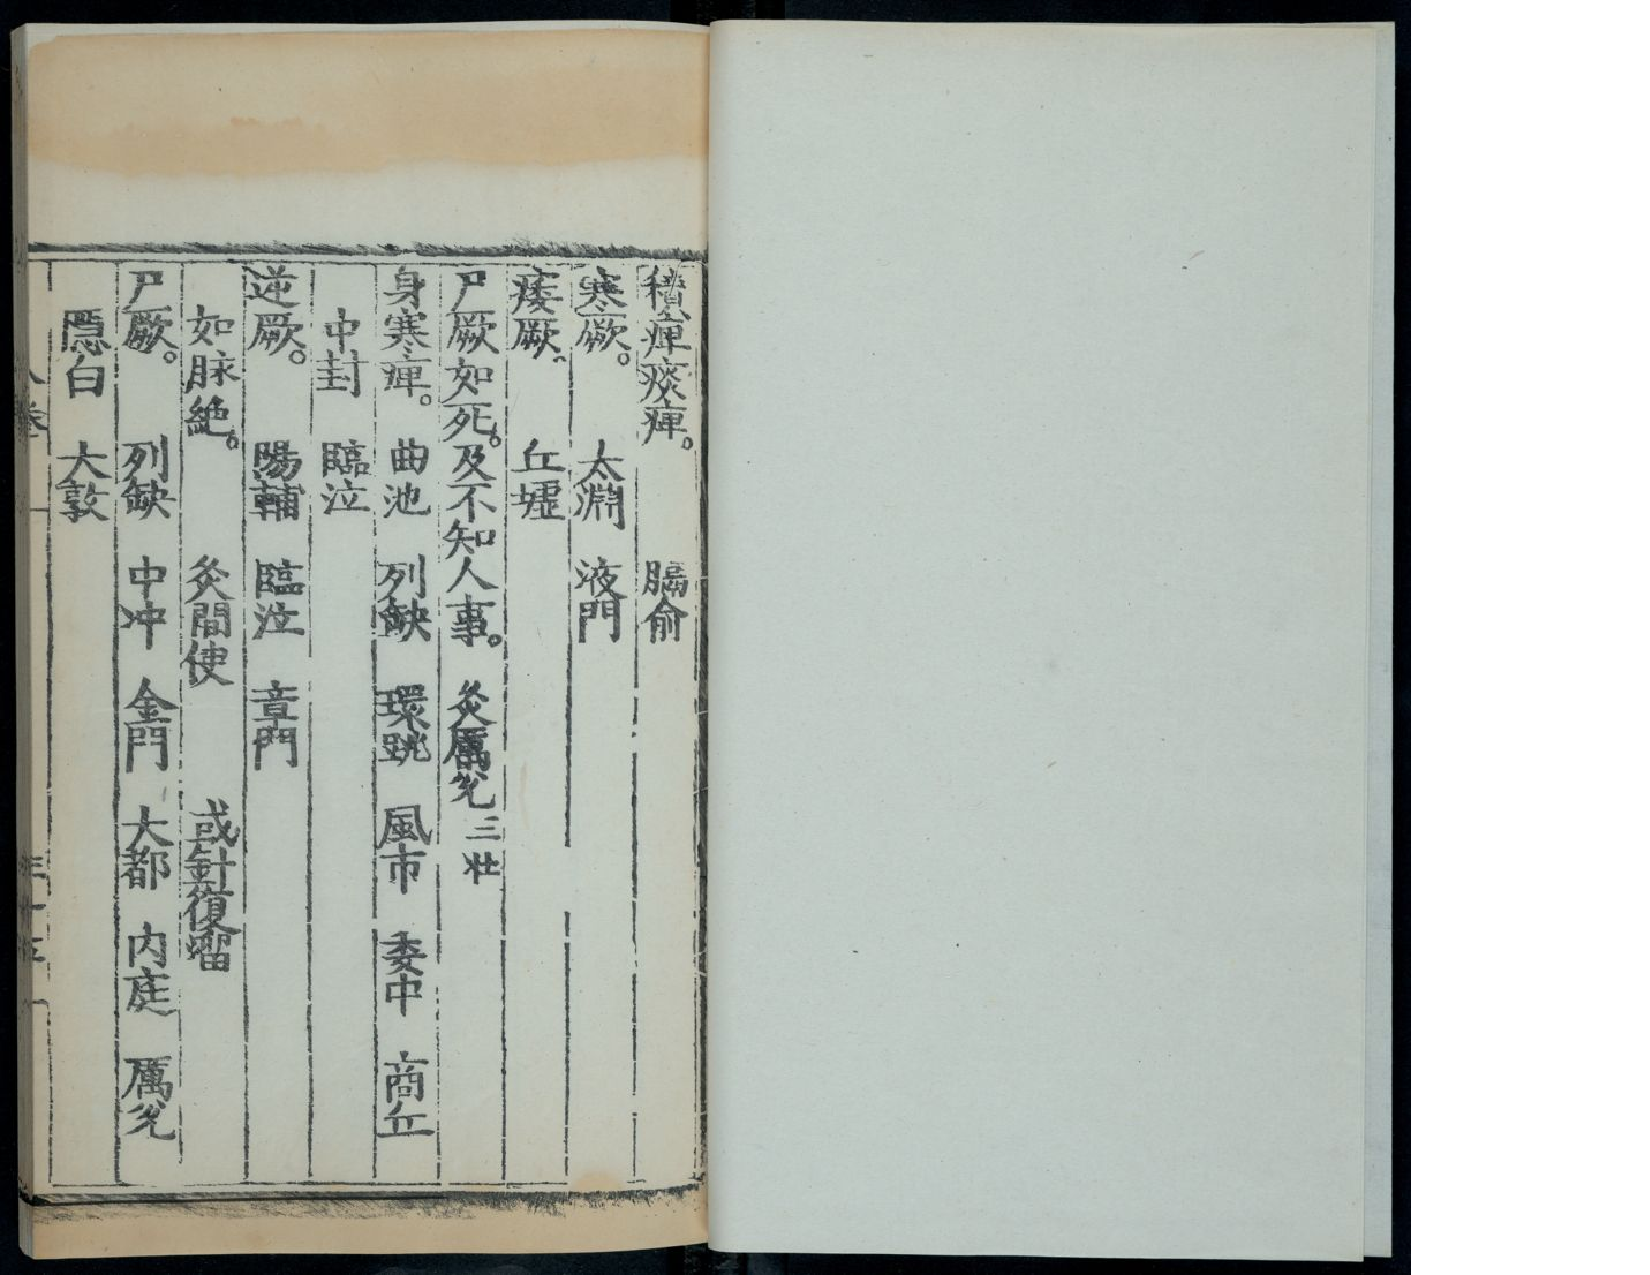 積痺痰痺。 膈俞
寒厥。 太淵 液門
痿厥。 丘墟
尸厥如死。及不知人事。 灸厲兌三壯
身寒痺。 曲池 列缺 環跳 風市 委中 商丘
中封 臨泣
逆厥。 陽輔 臨泣 章門
如脉絶。 灸間使 或針復溜
尸厥。 列缺 中冲 金門 大都 内庭 厲兌
隱白 大敦